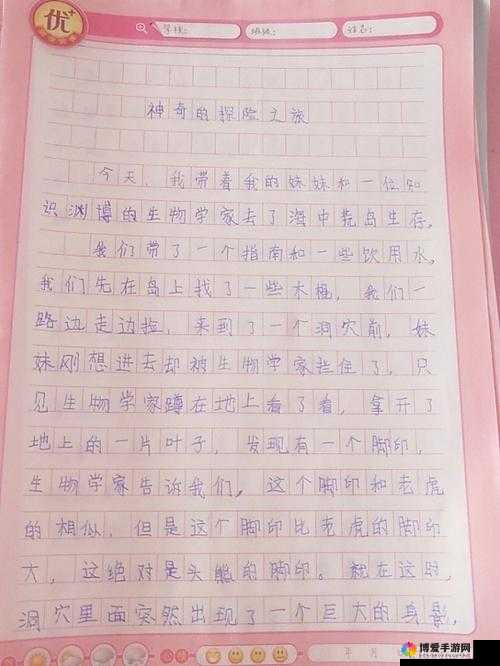 优+
学校: 班级: 姓名:
神奇的探险之旅
今天，我带着我的妹妹和一位知
识渊博的生物学家去了海中荒岛生存。
我们带了一个指南和一些饮用水，
我们先在岛上找了一些木棍，我们一
路边走边捡，来到了一个洞穴前，妹
妹刚想进去却被生物学家拦住了，只
见生物学家蹲在地上看了看，拿开了
地上的一片叶子，发现有一个脚印，
生物学家告诉我们，这个脚印和老虎
的相似，但是这个脚印比老虎的脚印
大，这绝对是头熊的脚印。就在这时，
洞穴里面突然出现了一个巨大的身影，
年 月
博爱手游网